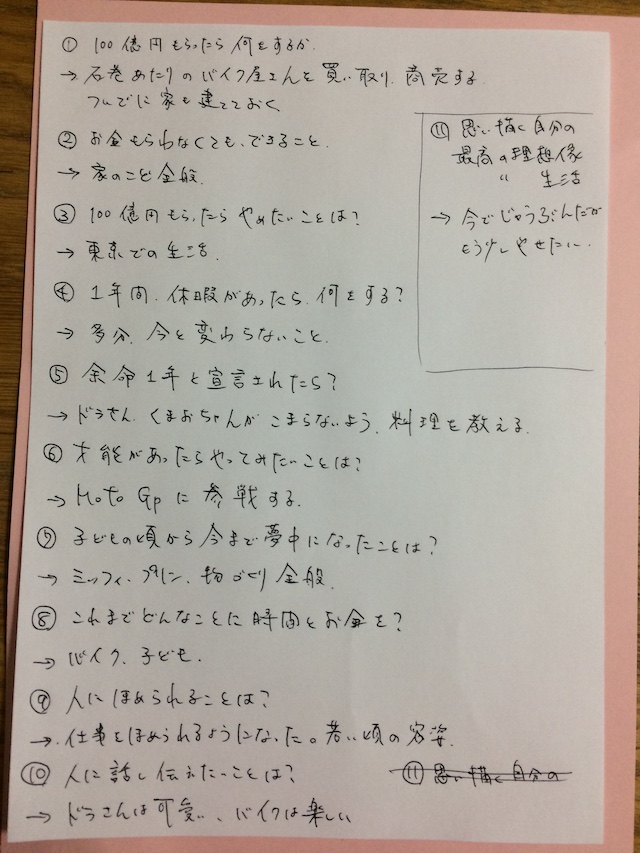 ① 100億円もらったら何をするか
→ 石巻あたりのバイク屋さんを買い取り、商売する
ついでに家も建てておく
② お金もらわなくても、できること
→ 家のこと全般
③ 100億円もらったらやめたいことは?
→ 東京での生活。
④ 1年間、休暇があったら、何をする?
→ 多分、今と変わらないこと。
⑤ 余命1年と宣言されたら?
→ ドラさん、くまおちゃんがこまらないよう、料理を教える
⑥ 才能があったらやってみたいことは?
→ Moto Gpに参戦する。
⑦ 子どもの頃から今まで夢中になったことは?
→ ミッフィ、プリン、物づくり全般。
⑧ これまでどんなことに時間とお金を?
→ バイク、子ども。
⑨ 人にほめられることは?
→ 仕事をほめられるようになった。若い頃の容姿。
⑩ 人に話し伝えたいことは?
→ ドラさんは可愛い、バイクは楽しい
⑪ 思い描く自分の
⑪ 思い描く自分の
最高の理想像
〃 生活
→ 今でじゅうぶんだが
もう少しやせたい。